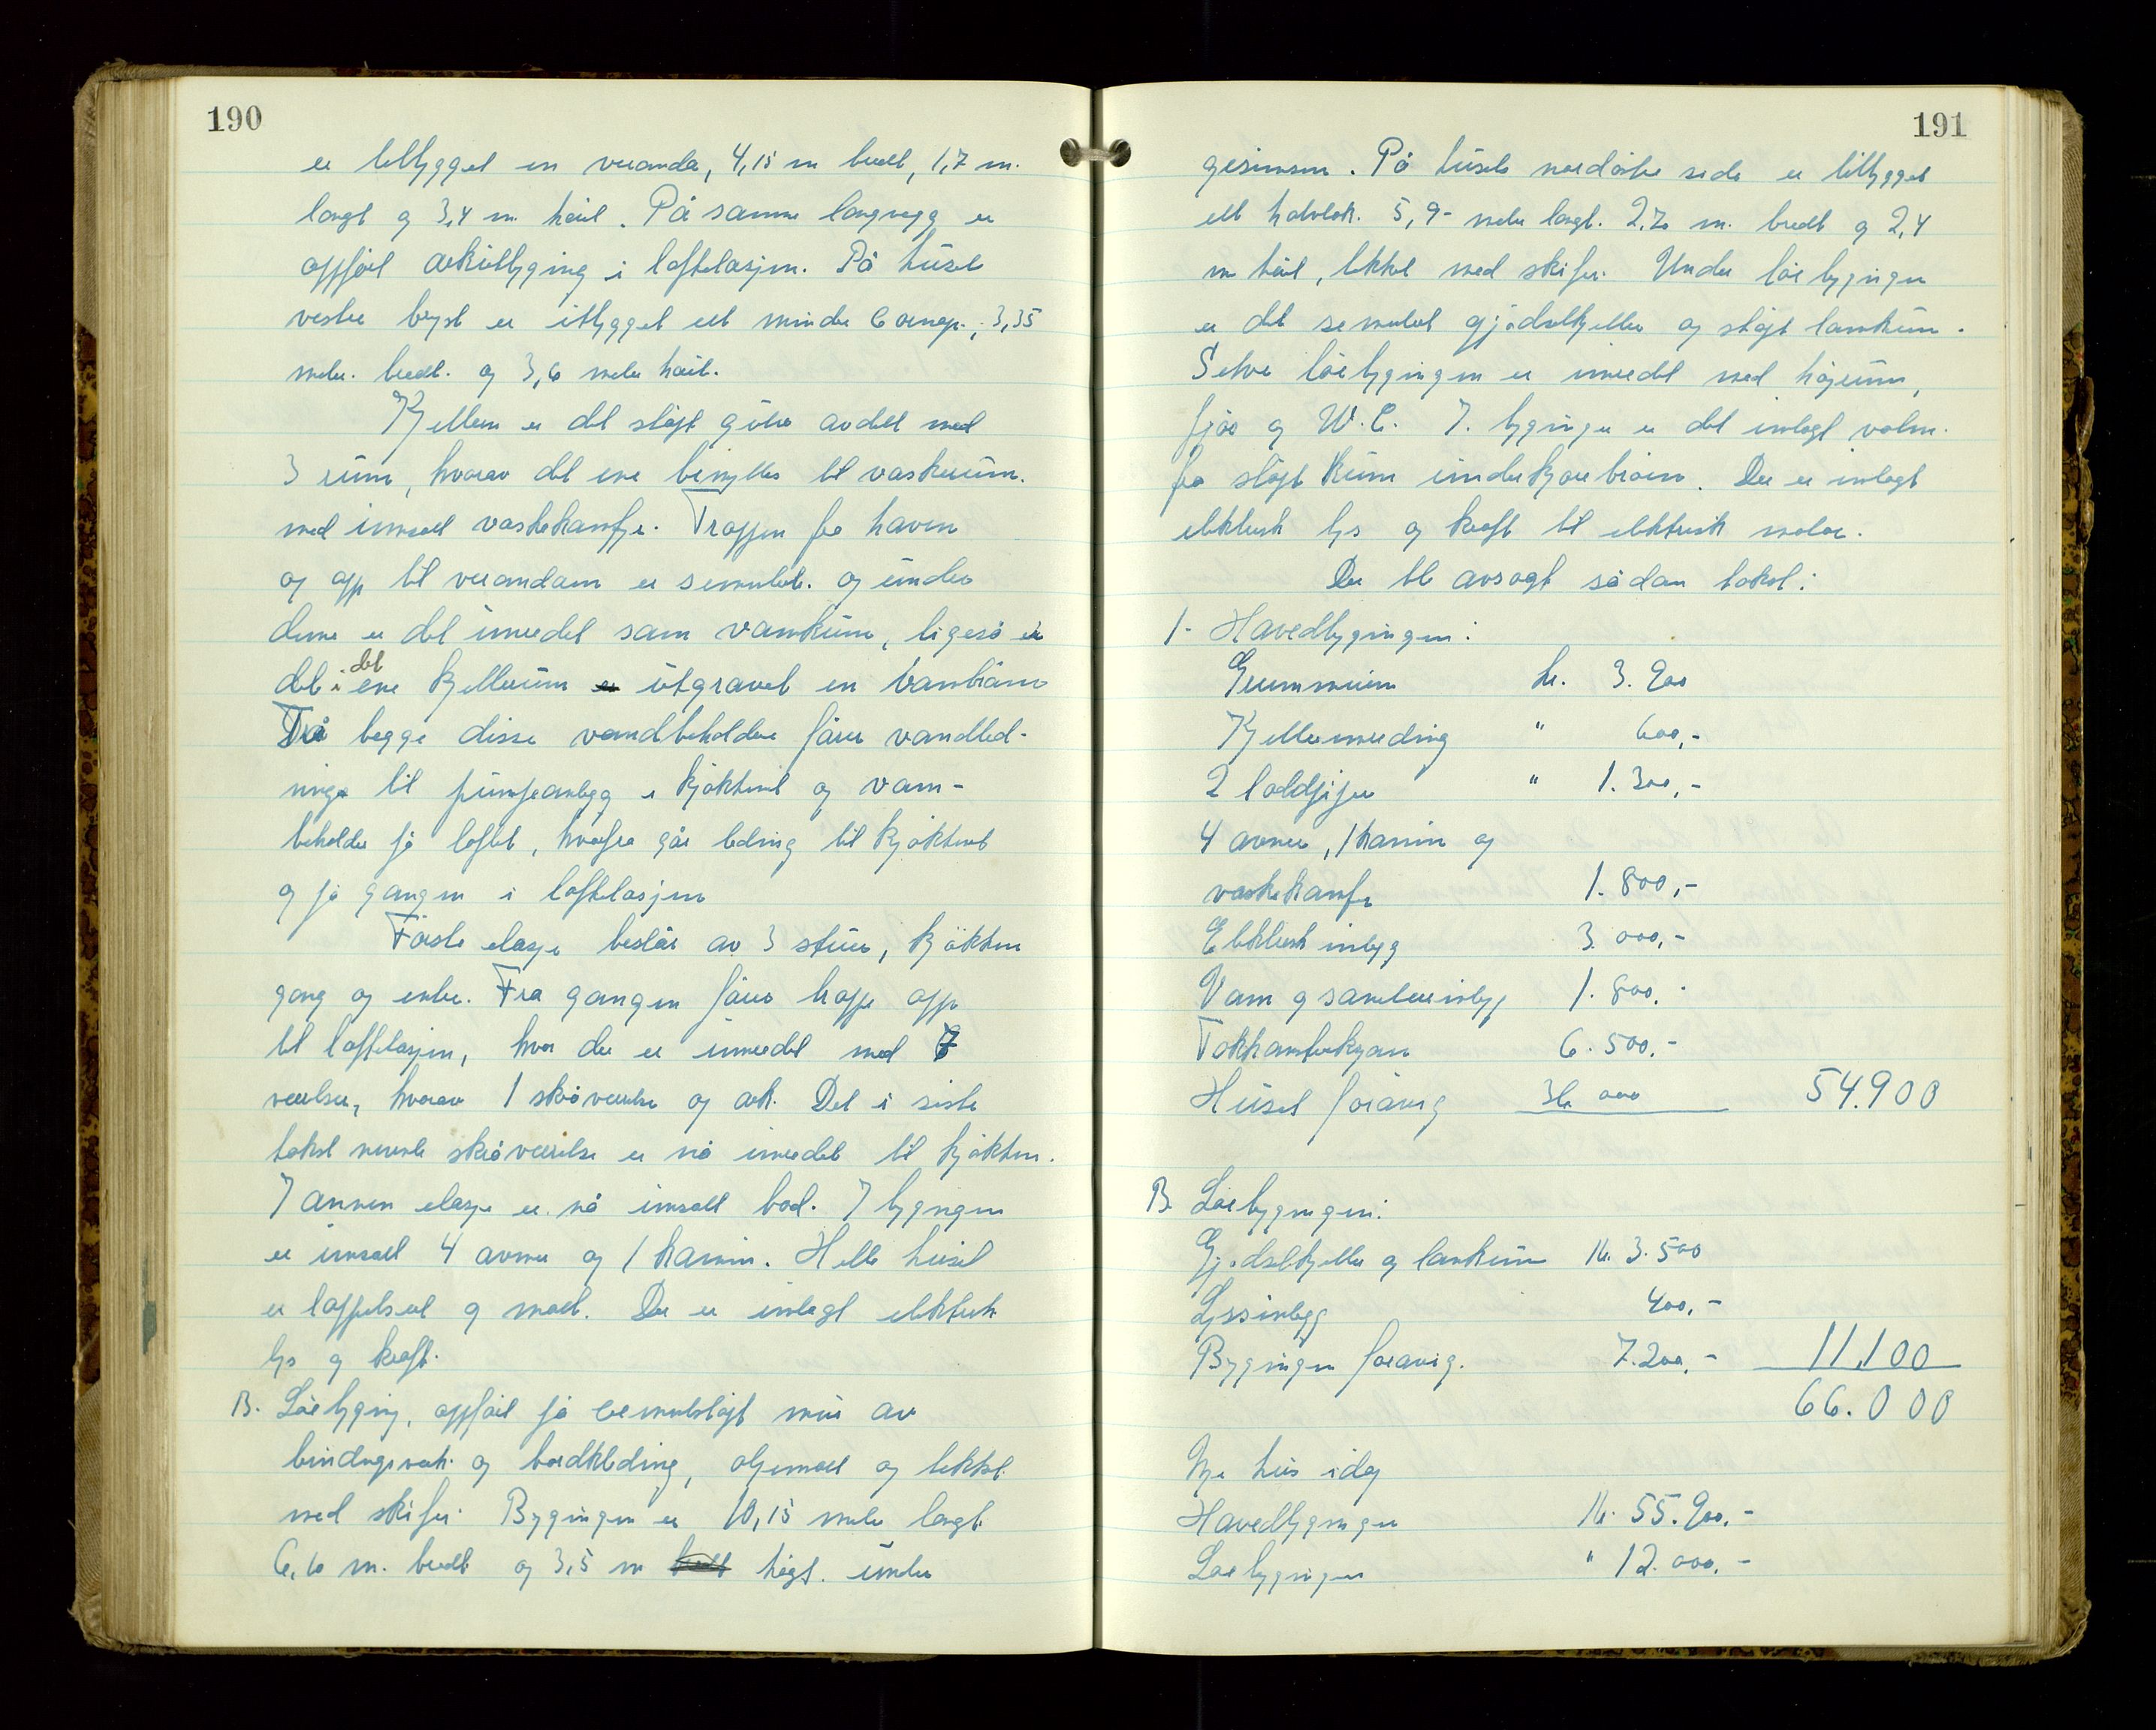 190
er tilbygget en veranda, 4,15 m bredt, 1,7 m.
langt og 3,4 m höit. På samme langvegg er
opföit arkutbyging i loftetasjen. På huset
vestre bryst er utbygget ett mindre 3,35
meter bredt. og 3,6 meter höit.
Kjelleren er det stöpt gölv avdelt med
3 rum, hvorav det ene benyttes til vaskerum.
med innsatt vaskekampe. Trappen fra haven
og opp til verandaen er sementert. og under
denne er det innredet som vannkum, ligeså er
det i det ene kjellerum utgravet en vanbrönn
Fra begge disse vandbeholdere förer vandled-
ninger til pumpeanlegg i kjökkenet og vann-
beholder på loftet, hvorfra går ledning til kjökkenet
og på gangen i loftetasjen
Förste etasje består av 3 stuer, kjökken
gang og entre. Fra gangen förer trapp opp
til loftetasjen, hvor der er innredet med 7
værelser, hvorav 1 skråværelse og ark. Det i siste
takst nevnte skråværelse er nå innredet til kjökken.
I annen etasje er nå innsatt bad. I bygningen
er innsatt 4 ovner og 1 kamin. Hele huset
er tapetsert og malt. Der er innlagt elektrisk
lys og kraft.
B. Löebygning, opföit på sementstöpt mur av
bindingsverk. og bordkledning, oljemalt og tekket
med skifer. Bygningen er 10,15 meter langt
6,60 m. bredt og 3,5 m högt. under
191
gesimsen. På husets nordöstre side er tilbygget
ett halvtak. 5,9- meter langt. 2,20 m. bredt og 2,4
m höit, tekket med skifer. Under löebygningen
er det sementert gjödselkjeller og stöpt lannkum.
Selve löebygningen er innredet med höyrum,
fjös og W.C. I bygningen er det innlagt vatn.
fra stöpt kum under kjörebroen. Der er innlagt
elektrisk lys og kraft til elektrisk motor.
Der ble avsagt sådan takst:
1- Hovedbygningen:
Grunnmuren kr. 3.900
Kjellerinnreding " 600,-
2 loddpiper " 1.300,-
4 ovner, 1 kamin og
vaskekampe 1.800,-
Elektrisk innlegg 3.000,-
Vann og sanitærinnlegg 1.800.-
Takkonstruksjon 6.500.-
Huset forövrig 36.000 54.900
B. Löebygningen:
Gjödselkjeller og lankum Kr. 3.500
Lysinnlegg 400,-
Bygningen forövrig. 7.200,- 11,100
66.000
Nye hus idag
Hovedbygningen Kr. 55.900.-
Löebygningen " 12.000.-